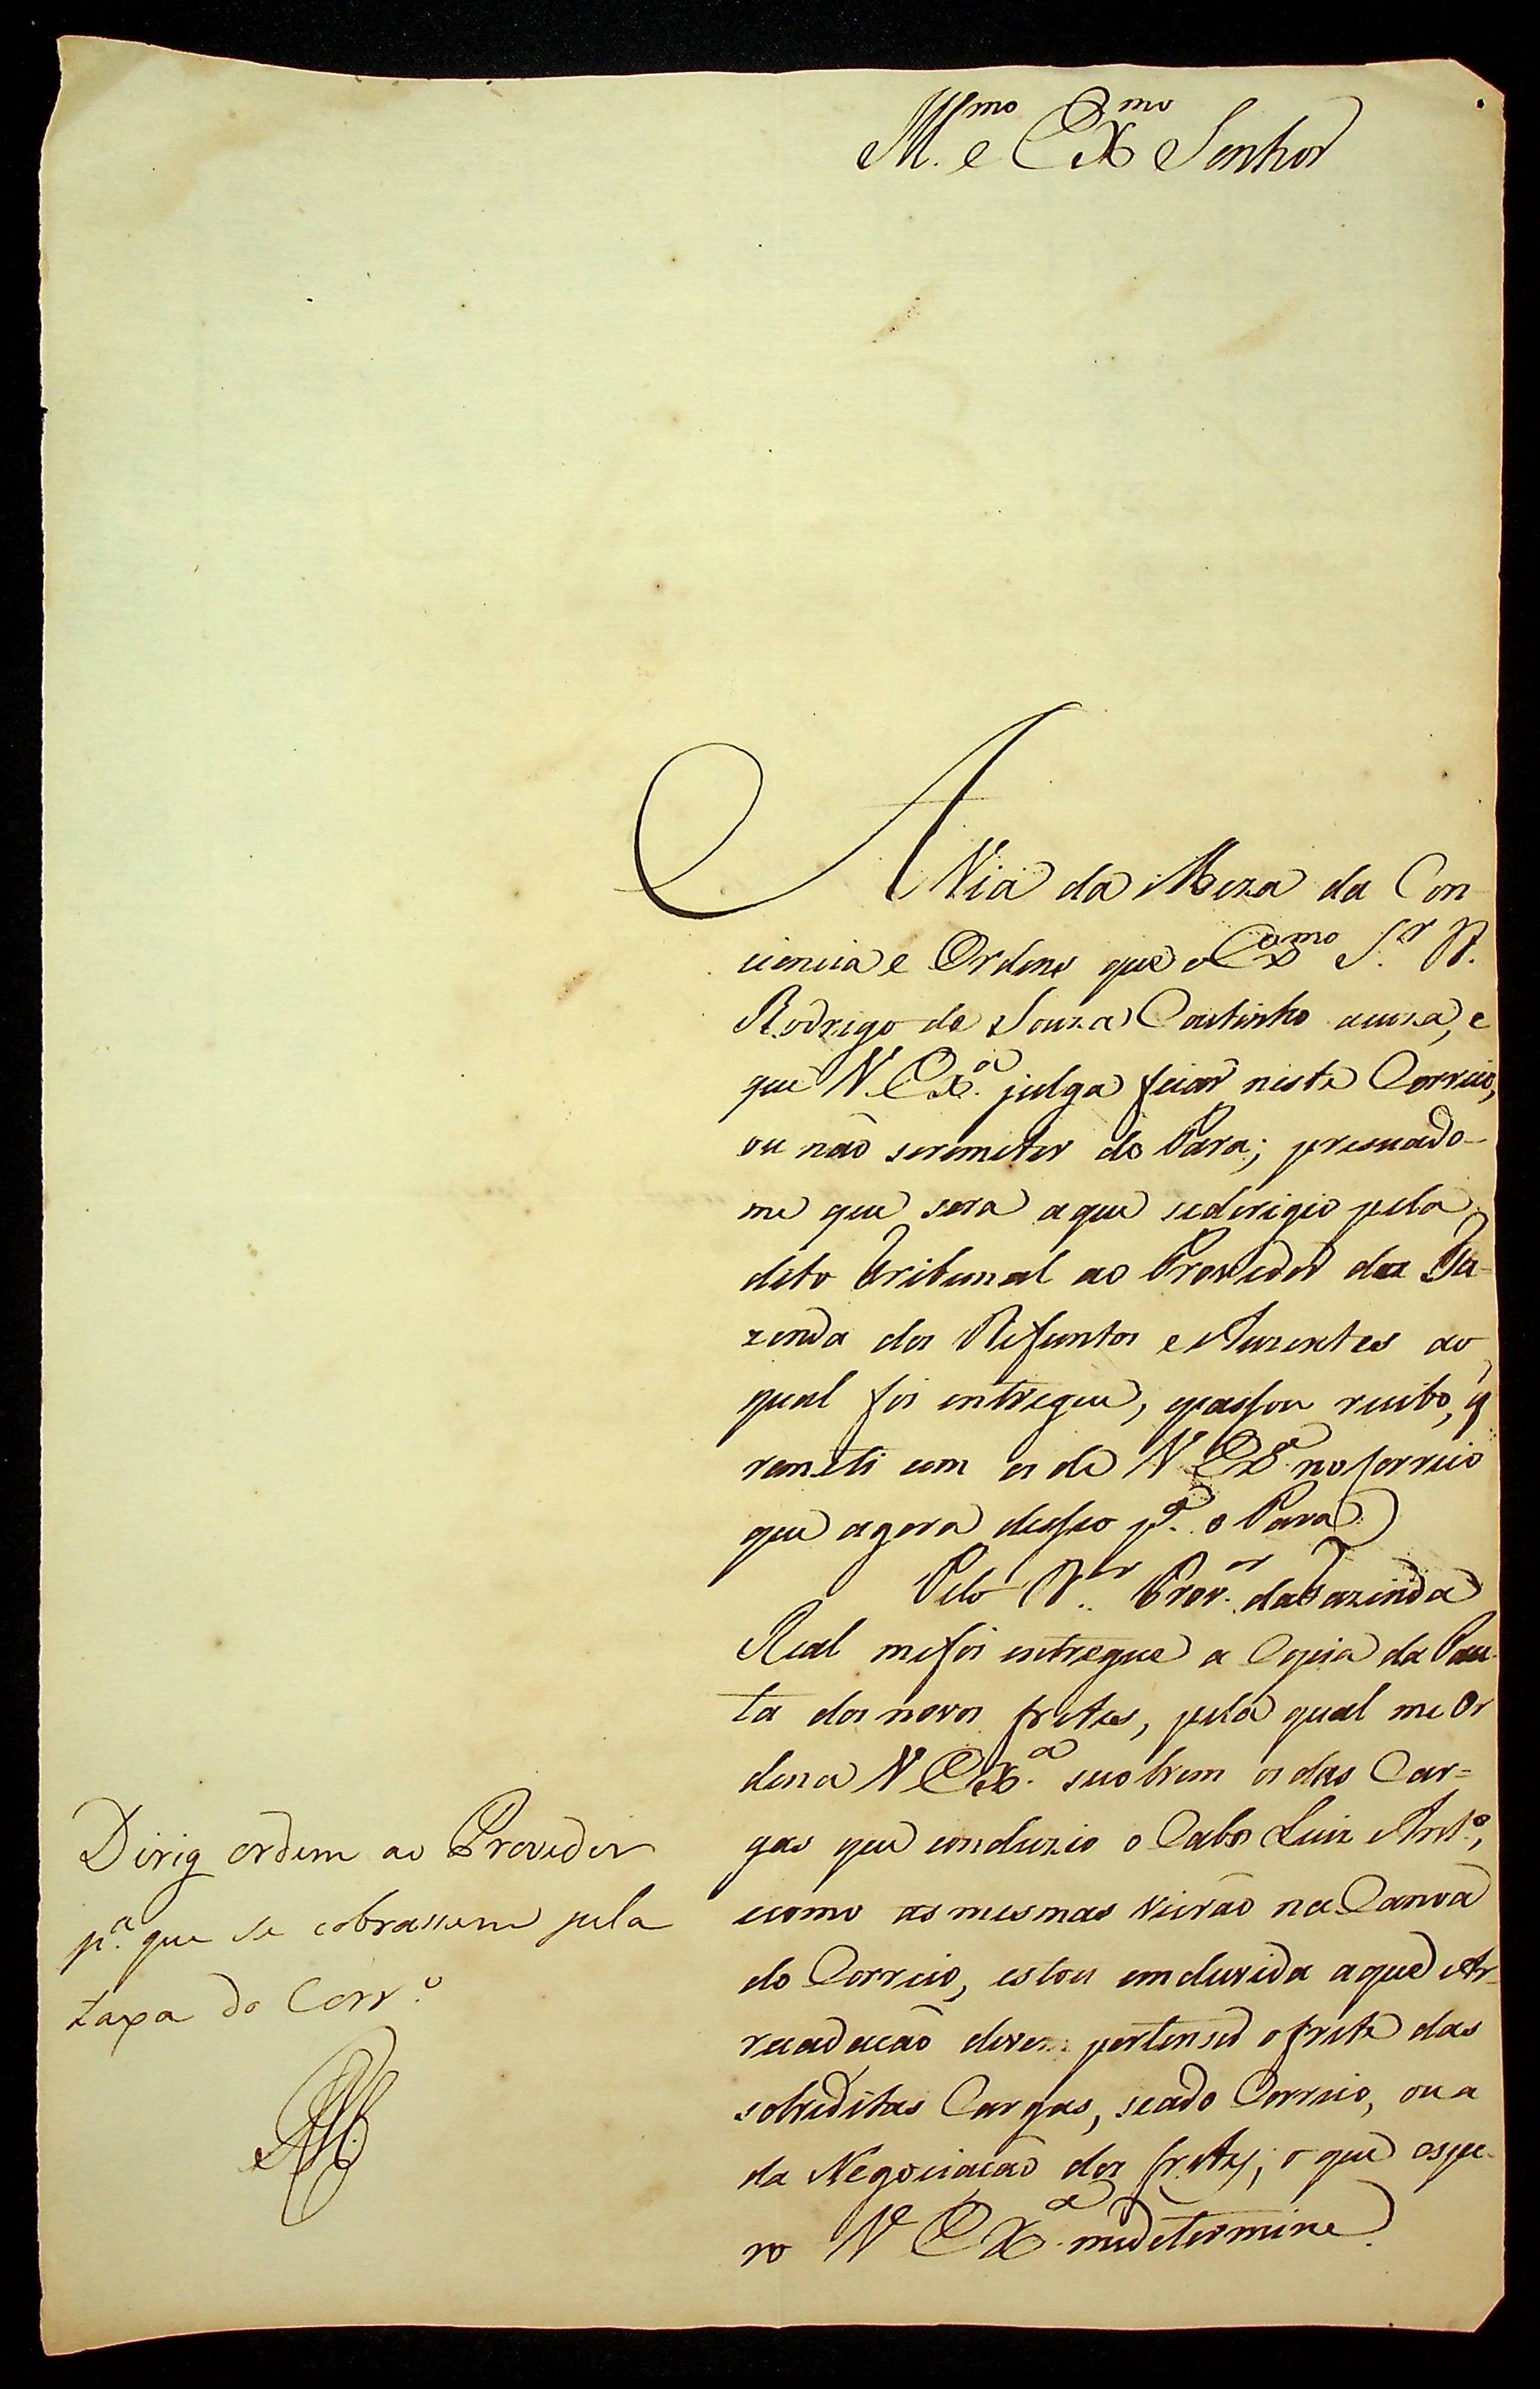 Ill.mo e Ex.mo Senhor
A Via da Meza da Con-
ciencia e Ordens que o Ex.mo S.r D.
Rodrigo de Souza Coutinho acuza, e
que V. Ex.a julga ficar neste Correio,
ou não seremeter do Para; presuado-
me que sera aque sederigio pela
dito Tribunal ao Provedor da Fa-
zenda dos Defuntos e Auzentes ao
qual foi entregue, epassou recibo, q
remeti com os de V Ex.a no Correio
que agora desseo p.a o Para
Pelo D.or Prov.or da Fazenda
Real mefoi entregue a Copia da Pau-
ta dos novos fretes, pela qual me Or
dena V Ex.a secobrem os das Car=
gas que conduzio o Cabo Luiz Ant.o,
ecomo as mesmas vierão na Canoa
do Correio, estou emduvida aque Ar-
recadacão devem pertenser o frete das
sobreditas Cargas, seado Correio, ou a
da Negociacão dos fretes; o que espe-
ro V Ex.a medetermine.
Dirig ordem ao Provedor
p.a que se cobrassem pela
taxa do Corr.o